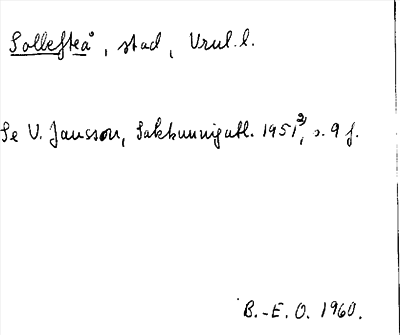 Sollefteå, stad, Vrml. l.
Se V. Jansson, Sakkunnigutl. 1951²⁾, s. 9 f.
B.-E. O. 1960.